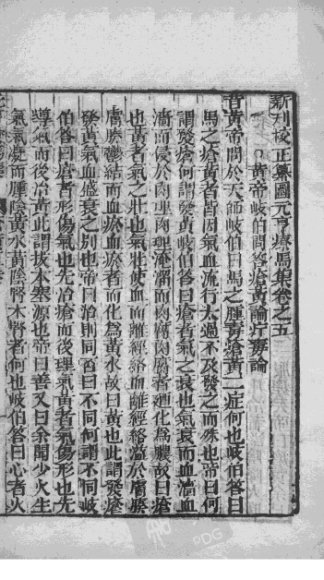 新刊校正纂圖元亨療馬集卷之五
○黃帝岐伯問答瘡黃論疔毒論
昔黃帝問於天師岐伯曰馬之腫毒瘡黃二症何也岐伯答曰
馬之瘡黃者皆因氣血流行太過不及發之而殊也帝曰何
謂發瘡何謂發黃岐伯答曰瘡者氣之衰也氣衰而血澁血
澁而侵於肉裡肉理淹溜而肉腐肉腐者迺化為膿故曰瘡
也黃者氣之壯也氣壯使血而離經絡血離經絡溢於膚腠
膚腠鬱結而血瘀血瘀者而化為黃水故曰黃也此謂發瘡
發黃氣血盛衰之別也帝曰治則同否曰不同何謂不同岐
伯答曰瘡者形傷氣也先治瘡而後理氣黃者氣傷形也先
導氣而後治黃此謂拔本塞源也帝曰善又曰余聞少火生
氣氣凝而腫陰黃水黃陰腎木腎者何也岐伯答曰心者火
PDG